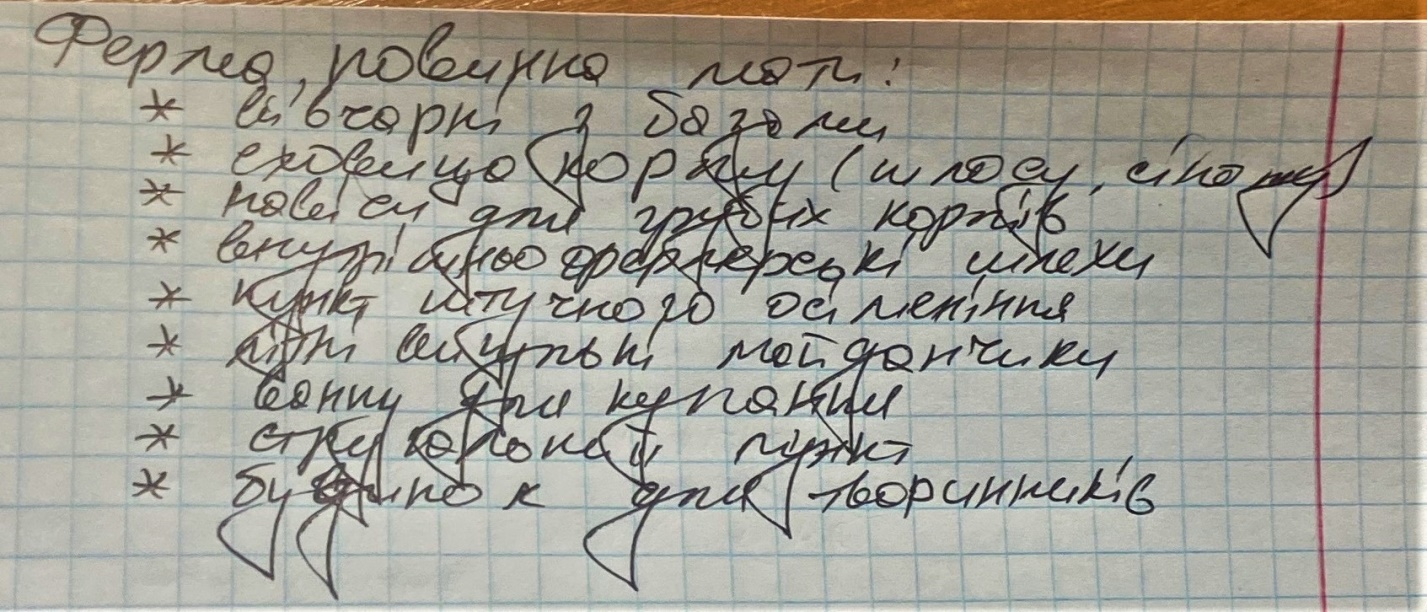 Ферма, повинна мати:
* вівчарні з базами
* сховища корму (силосу, сінажу)
* навіси для грубих кормів
* внутрішньофермерські шляхи
* пункт штучного осіменіння
* літні вигульні майданчики
* ванну для купання
* стригальний пункт
* будинок для тваринників